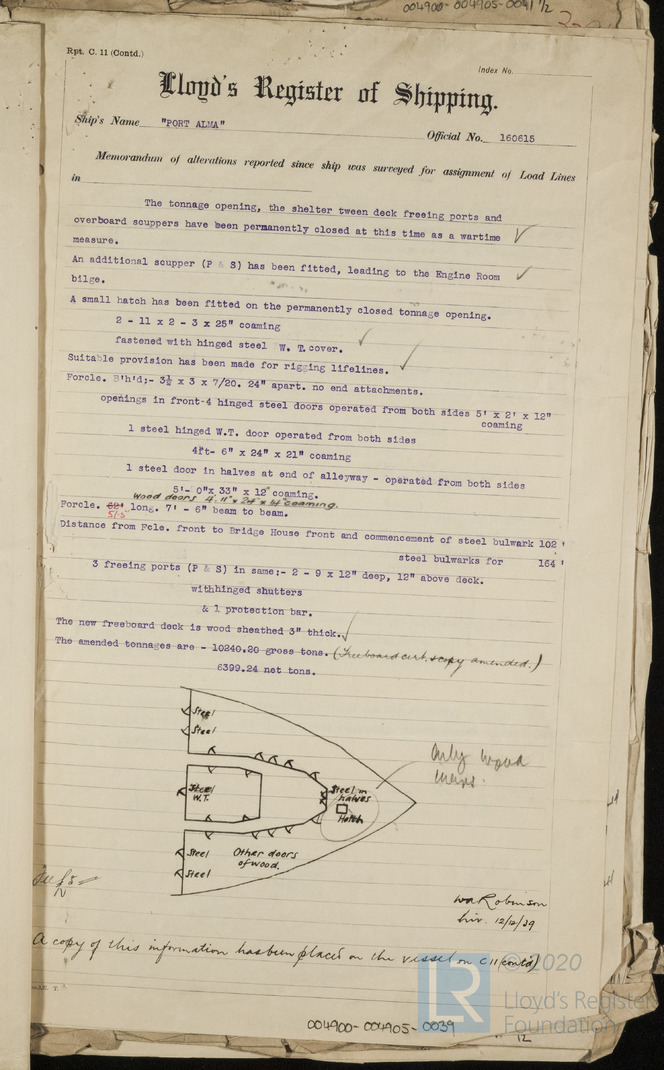 004900-004905-0041 1/2
Rpt. C. 11 (Contd.)
Index No.
Lloyd's Register of Shipping.
Ship's Name "PORT ALMA"
Official No. 160615
Memorandum of alterations reported since ship was surveyed for assignment of Load Lines
in
The tonnage opening, the shelter tween deck freeing ports and
overboard scuppers have been permanently closed at this time as a wartime
measure.
An additional scupper (P & S) has been fitted, leading to the Engine Room
bilge.
A small hatch has been fitted on the permanently closed tonnage opening.
2 - 11 x 2 - 3 x 25" coaming
fastened with hinged steel W. T. cover.
Suitable provision has been made for rigging lifelines.
Forcle. B'h'd;- 3½ x 3 x 7/20. 24" apart. no end attachments.
openings in front-4 hinged steel doors operated from both sides 5' x 2' x 12"
coaming
1 steel hinged W.T. door operated from both sides
4ft- 6" x 24" x 21" coaming
1 steel door in halves at end of alleyway - operated from both sides
5'- 0"x 33" x 12" coaming.
Wood doors 4'.11" x 24" x 4" coaming.
Forcle. 62' long. 7' - 6" beam to beam.
51.5
Distance from Fcle. front to Bridge House front and commencement of steel bulwark 102'
steel bulwarks for 164'
3 freeing ports (P & S) in same;- 2 - 9 x 12" deep, 12" above deck.
withhinged shutters
& 1 protection bar.
The new freeboard deck is wood sheathed 3" thick.
The amended tonnages are - 10240.20 gross tons. (Freeboard cert. & copy amended.)
6399.24 net tons.
Steel
Steel
Steel
W.T.
Steel in
halves
Hatch
Only wood
Steel
Steel
Other doors
of wood.
W A Robinson
Liv. 12/12/39
A copy of this information has been placed on the vessel on C 11 (contd)
LR
© 2020
Lloyd's Register
Foundation
004900-004905-0039
12